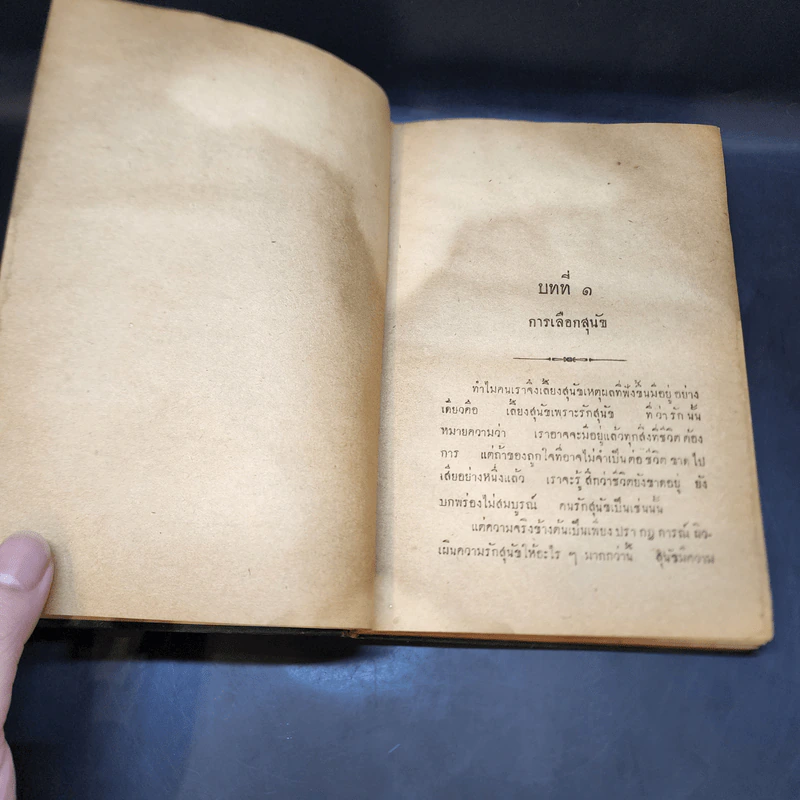 บทที่ ๑
การเลือกสุนัข
ทำไมคนเราจึงเลี้ยงสุนัขเหตุผลที่ฟังขึ้นมีอยู่ อย่าง
เดียวคือ เลี้ยงสุนัขเพราะรักสุนัข ที่ ว่า รัก นั้น
หมายความว่า เราอาจจะมีอยู่แล้วทุกสิ่งที่ชีวิต ต้อง
การ แต่ถ้าของถูกใจที่อาจไม่จำเป็น ต่อ ชีวิต ขาด ไป
เสียอย่างหนึ่งแล้ว เราจะรู้ สึกว่าชีวิตยังขาดอยู่ ยัง
บกพร่องไม่สมบูรณ์ คนรักสุนัขเป็นเช่นนั้น
แต่ความจริงข้างต้นเป็นเพียง ปรา กฎ การณ์ ผิว
เผินความรักสุนัขให้อะไร ๆ มากกว่านี้ สุนัขมีความ